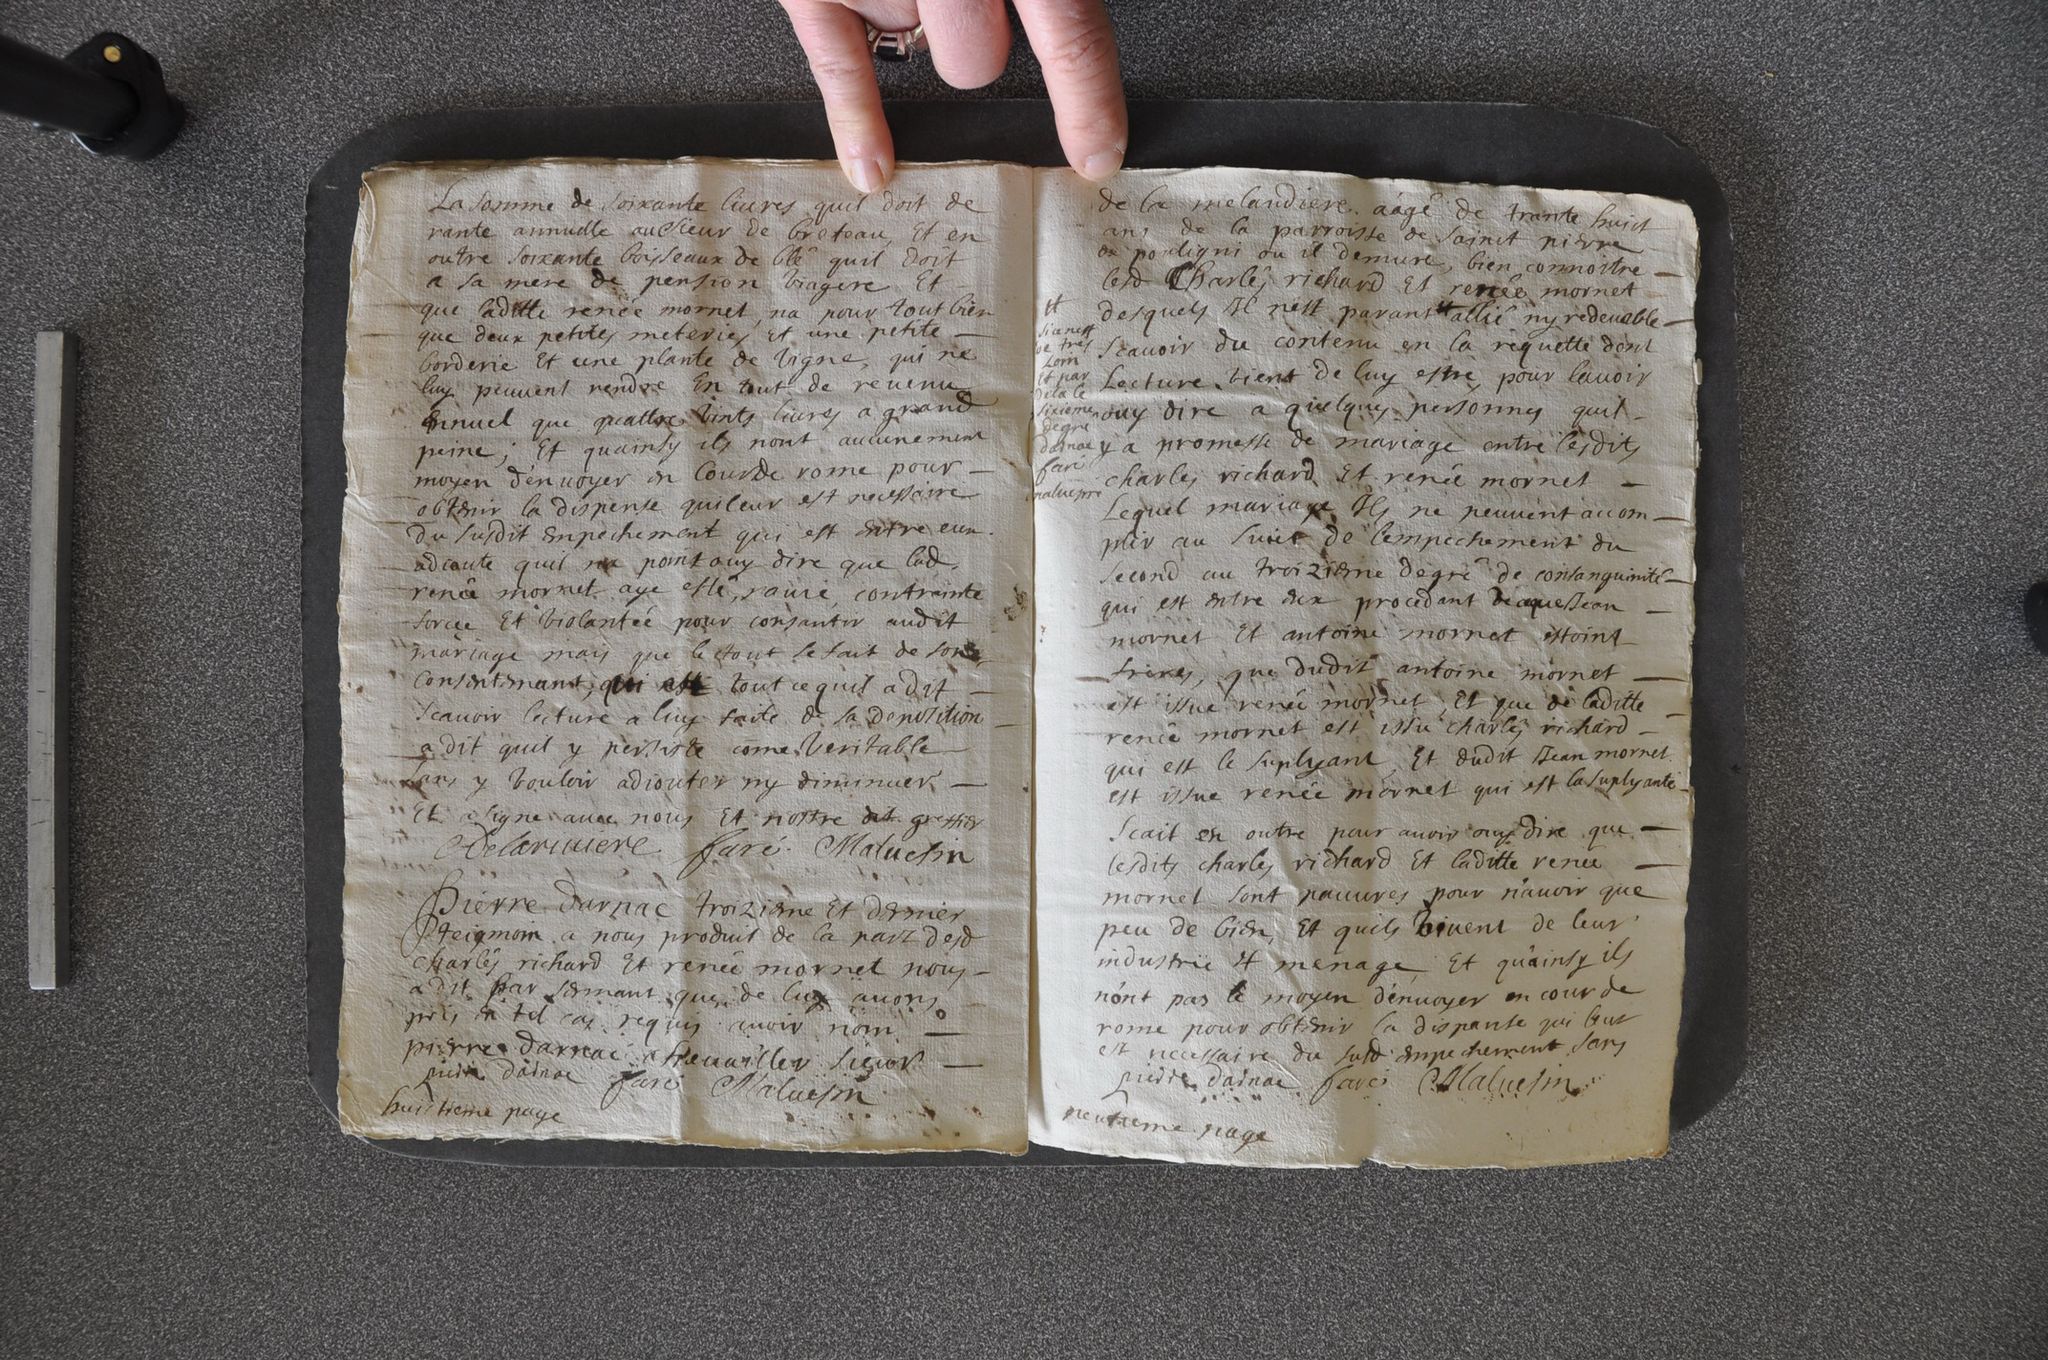 La somme de soixante livres quil doit de
rante annuelle au sieur de breteau, Et en
outre soixante boisseaux de blé quil doit
a sa mere de pension viagere Et
que laditte renée mornet, na pour tout bien
que deux petites meteries, Et une petite
borderie Et une plante de vigne, qui ne
luy peuvent rendre En tout de revenu
annuel que quattre vints livres a grand
peine; Et quainsy ils nont aucunement
moyen d'envoyer en Cour de rome pour
obtenir la dispense qui leur est necessaire
du susdit enpechement qui est entre eux.
adioute quil na point ouy dire que lad.
renée mornet aye esté, ravie, contrainte
forcee Et violantée pour consantir audit
mariage mais que le tout se fait de son
consentemant, qui est tout ce quil a dit
scavoir lecture a luy faite de sa deposition
a dit quil y persiste come veritable
sans y vouloir adiouter ny diminuer
Et a signé avec nous Et nostre dit greffier
Delariviere faré Malvesin
Pierre darnac troizieme Et dernier
temoin a nous produit de la part desd
charles richard Et renée mornet nous
a dit par sermant que de luy avons
pris en tel cas requis avoir nom
pierre darnac chevallier sieur
pierre darnac faré Malvesin
huictieme page
de la melaudiere aagé de trante huict
ans de la parroisse de sainct pierre
de pouligni ou il demure, bien connoitre
lesd Charles richard Et renée mornet
desquels Il nest parant # allié ny redevable
# si ce nest
de tres
loin
Et par
dela le
sixieme
degre
darnac
faré
malvesin
scavoir du contenu en la requette dont
Lecture vient de luy estre, pour lavoir
ouy dire a quelques personnes quil
y a promesse de mariage entre lesdits
charles richard Et renée mornet
Lequel mariage Ils ne peuvent acom
plir au suiet de l'empechement du
second au troizieme degré de consanguinité
qui est entre eux procedant de ce que Jean
mornet Et antoine mornet estoint
freres, que dudit antoine mornet
est issue renée mornet, Et que de laditte
renée mornet est issu charles richard
qui est le suplyant, Et dudit Jean mornet
est issue renée mornet qui est la suplyante
Scait en outre pour avoir ouy dire que
lesdits charles richard Et laditte renée
mornet sont pauvres pour n'avoir que
peu de bien, Et quils vivent de leur
industrie Et menage, Et qu'ainsy ils
n'ont pas le moyen d'envoyer en cour de
rome pour obtenir la dispanse qui leur
est necessaire du susd enpechement sans
pierre darnac faré Malvesin
neufieme page